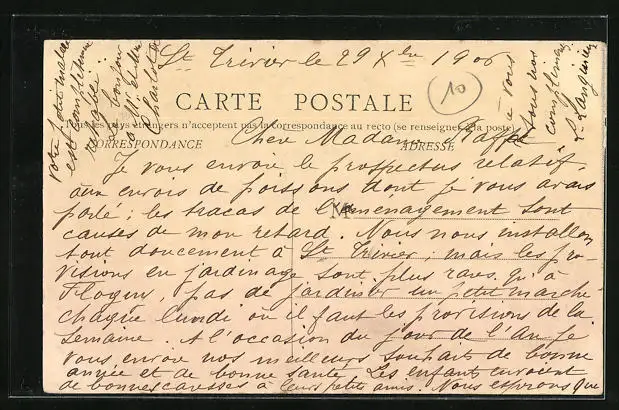 St Trivier le 29 Xbre 1906
10
CARTE POSTALE
Tous les pays étrangers n'acceptent pas la correspondance au recto (se renseigner à la poste)
CORRESPONDANCE ADRESSE
Chère Madame
Je vous envoie le prospectus relatif
aux envois de poissons dont je vous avais
parlé ; les tracas de l'aménagement sont
M
causes de mon retard. Nous nous installons
tout doucement à St Trivier ; mais les pro-
visions en jardinage sont plus rares qu'à
pas de jardinier un petit marché
chaque lundi où il faut les provisions de la
semaine. A l'occasion du jour de l'An je
vous envoie nos meilleurs souhaits de bonne
année et de bonne santé. Les enfants envoient
de bonnes caresses à leurs petits amis. Nous espérons que
votre petit malade
est complètement
rétabli.
Le bonjour
à Mr et Mme
à vous
tous nos
compliments